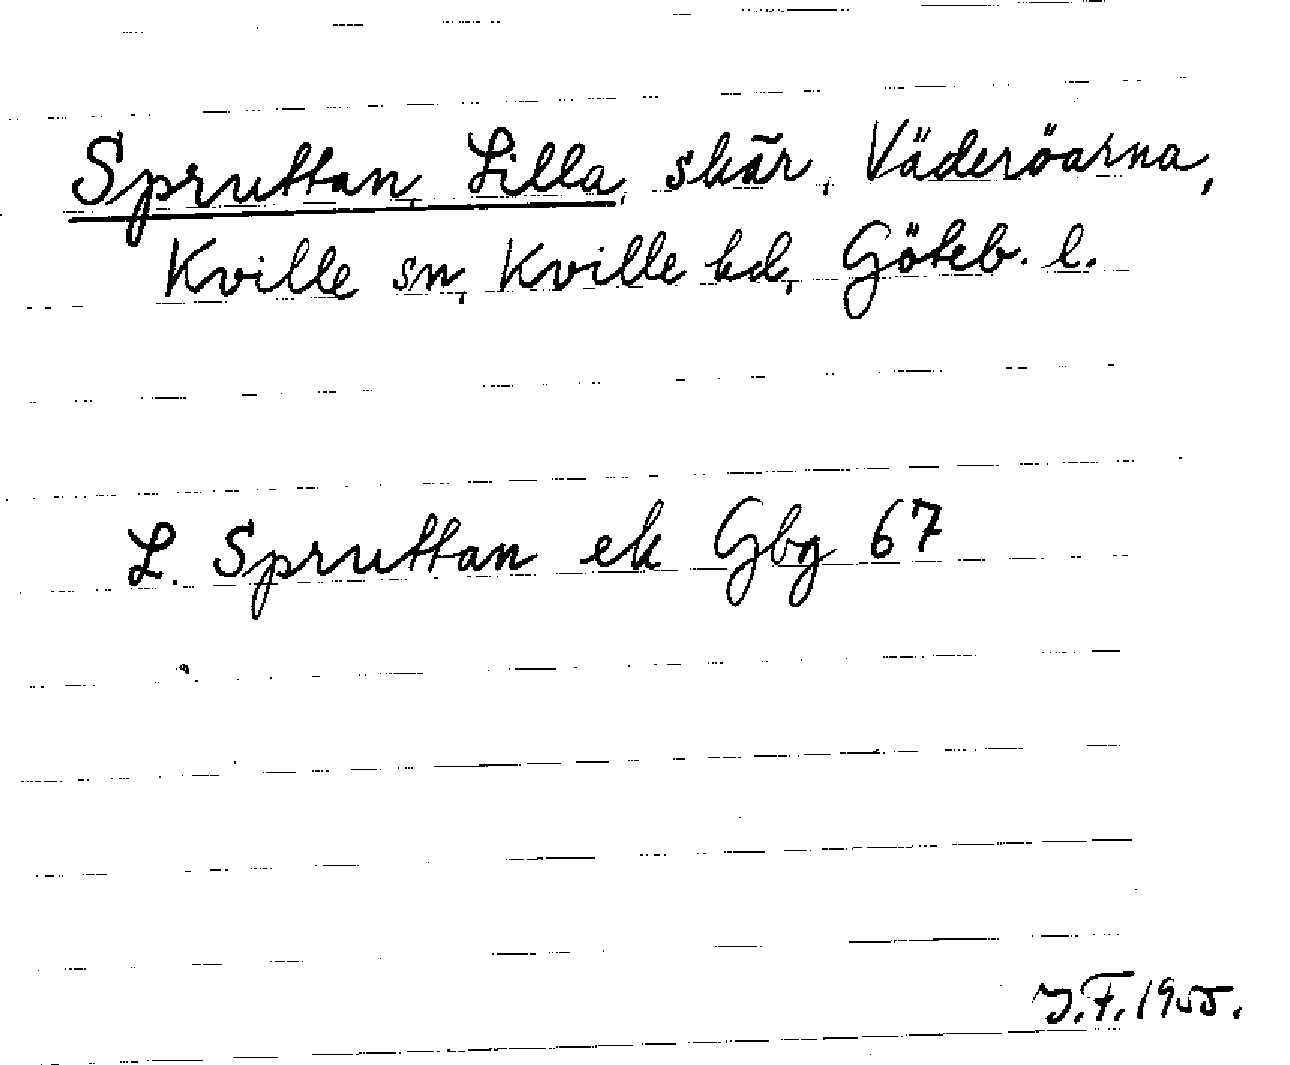 Spruttan, Lilla, skär, Väderöarna,
Kville sn, Kville hd, Göteb. l.
L. Spruttan ek Gbg 67
J.F. 1955.